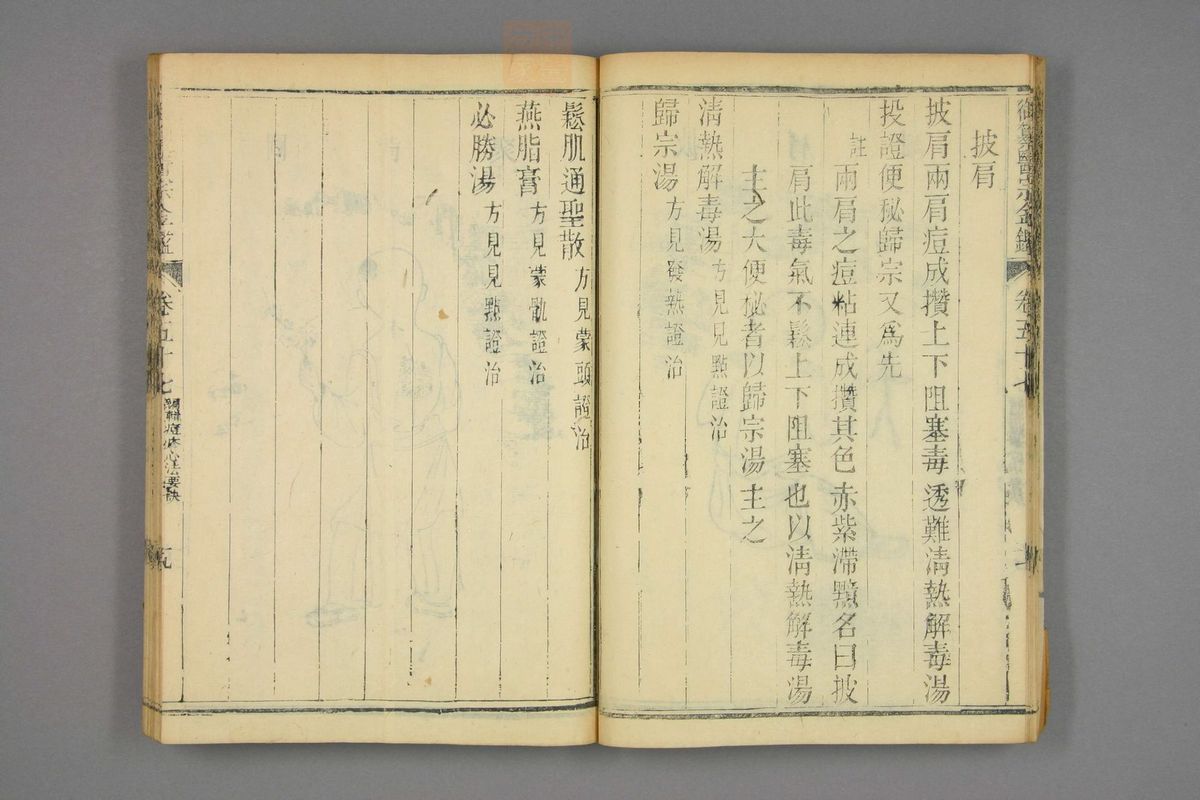 御纂醫宗金鑑 卷五十七
披肩
披肩兩肩痘成攢上下阻塞毒透難清熱解毒湯
投證便秘歸宗又爲先
註兩肩之痘粘連成攢其色赤紫滯黯名曰披
肩此毒氣不鬆上下阻塞也以清熱解毒湯
主之大便秘者以歸宗湯主之
清熱解毒湯方見見點證治
歸宗湯方見發熱證治
鬆肌通聖散方見蒙頭證治
燕脂膏方見蒙骩證治
必勝湯方見見點證治
宗金鑑 卷五十七 編輯痘疹心法要訣